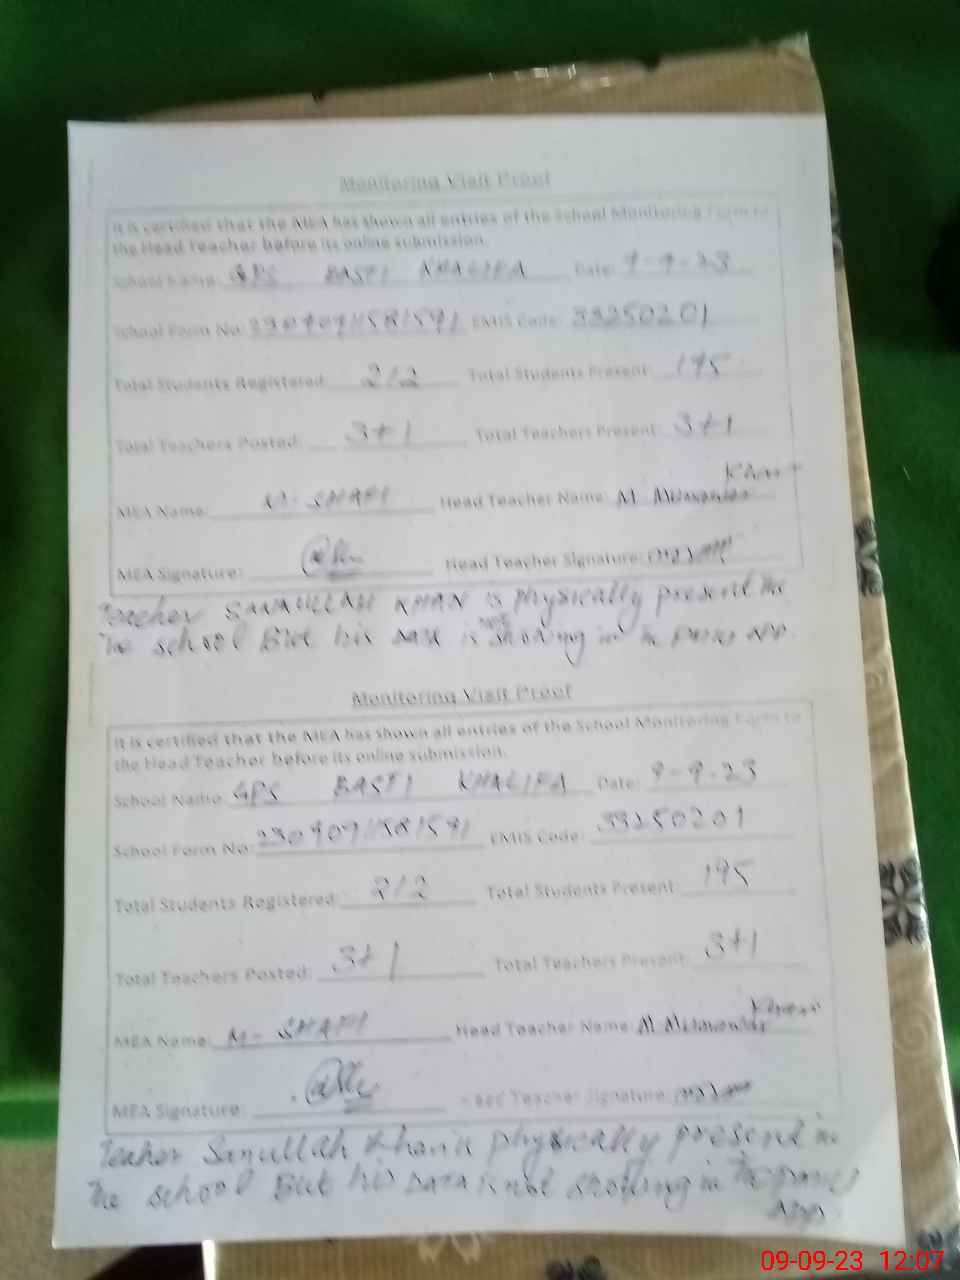 Monitoring Visit Proof
It is certified that the MEA has shown all entries of the School Monitoring Form to
the Head Teacher before its online submission.
School Name: GPS BASTI KHALIFA Date: 9-9-23
School Form No: 23090911581591 EMIS Code: 33250201
Total Students Registered: 212 Total Students Present: 195
Total Teachers Posted: 3+1 Total Teachers Present: 3+1
Khan
MEA Name: M. SHAFI Head Teacher Name: M.
MEA Signature: Head Teacher Signature:
Teacher SANAULLAH KHAN is physically present in
The school But his data is not showing in the app.
Monitoring Visit Proof
It is certified that the MEA has shown all entries of the School Monitoring Form to
the Head Teacher before its online submission.
School Name: GPS BASTI KHALIFA Date: 9-9-23
School Form No: 23090911581591 EMIS Code: 33250201
Total Students Registered: 212 Total Students Present: 195
Total Teachers Posted: 3+1 Total Teachers Present: 3+1
Khan
MEA Name: M- SHAFI Head Teacher Name: M.
MEA Signature: Head Teacher Signature:
Teacher Sanullah Khan is physically present in
The school But his data is not showing in the
App.
09-09-23 12:07